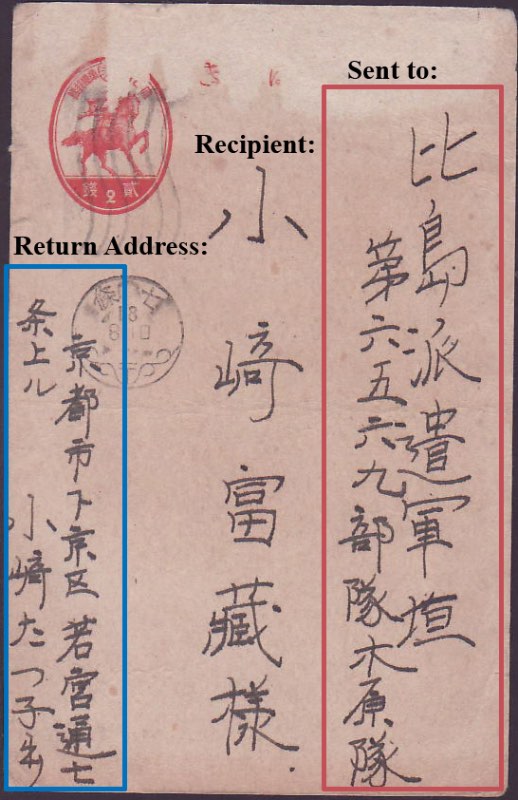 Sent to:
比島派遣軍垣
第六五六九部隊木原隊
Recipient:
小﨑富藏様
Return Address:
京都市下京区若宮通七
条上ル 小﨑たつ子
貳2錢
18